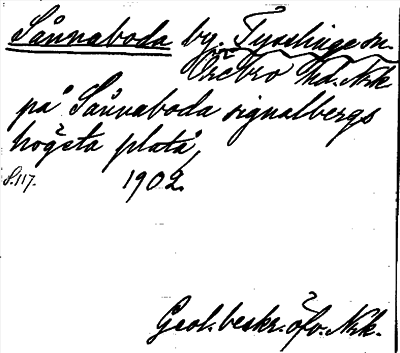 Sånnaboda by. Tysslinge sn.
Örebro hd. Nrk
på Sånnaboda signalbergs
högsta platå,
S. 117. 1902.
Geol. beskr. öfv. Nrk.